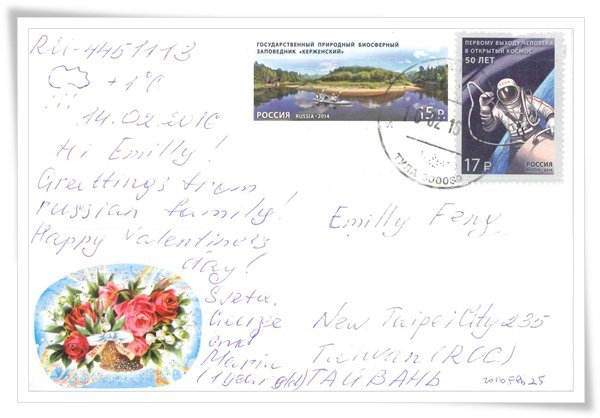 RU-4451113
+1°C
14.02.2016
Hi Emilly!
Greattings from
russian family!
Happy Valentine's
day!
Sveta,
George
and
Maria
(1 year old)
ГОСУДАРСТВЕННЫЙ ПРИРОДНЫЙ БИОСФЕРНЫЙ
ЗАПОВЕДНИК «КЕРЖЕНСКИЙ»
РОССИЯ
RUSSIA•2014
15 Р
ПЕРВОМУ ВЫХОДУ ЧЕЛОВЕКА
В ОТКРЫТЫЙ КОСМОС
50 ЛЕТ
17 Р
РОССИЯ
ТУЛА
Emilly Feng
New Taipei City 235
Taiwan (ROC)
ТАЙВАНЬ
2016 FEB 25